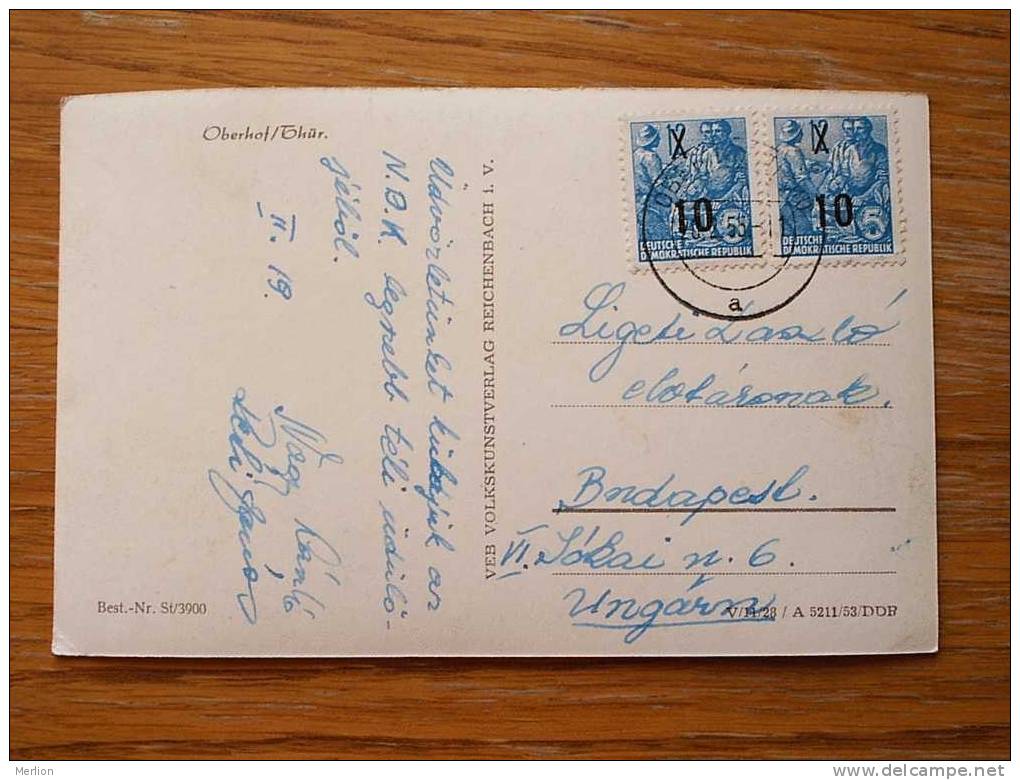 Oberhof/Thür.
Üdvözletünket küldjük az
N.D.K. legszebb téli üdülő-
jéből.
II. 19.
Nagy
VEB VOLKSKUNSTVERLAG REICHENBACH i. V.
Best.-Nr. St/3900
12
X
10
5
DEUTSCHE
DEMOKRATISCHE REPUBLIK
12
X
10
5
DEUTSCHE
DEMOKRATISCHE REPUBLIK
55-11
a
Ligeti László
előtárónak.
Budapest.
VI. Jókai u. 6.
Ungárn
V/11/28 / A 5211/53/DDR
Merlion
http://www.delcampe.net